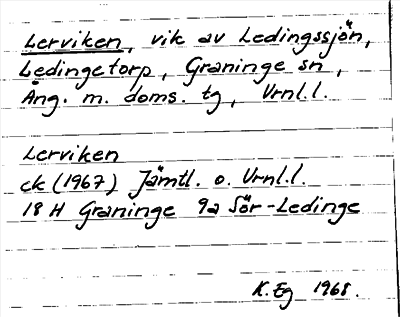 Lerviken, vik av Ledingssjön,
Ledingetorp, Graninge sn,
Ång. m. doms. tg, Vrnl.l.
Lerviken
ek (1967) Jämtl. o. Vrnl.l.
18 H Graninge 9a Sör-Ledinge
K. Eg 1968.